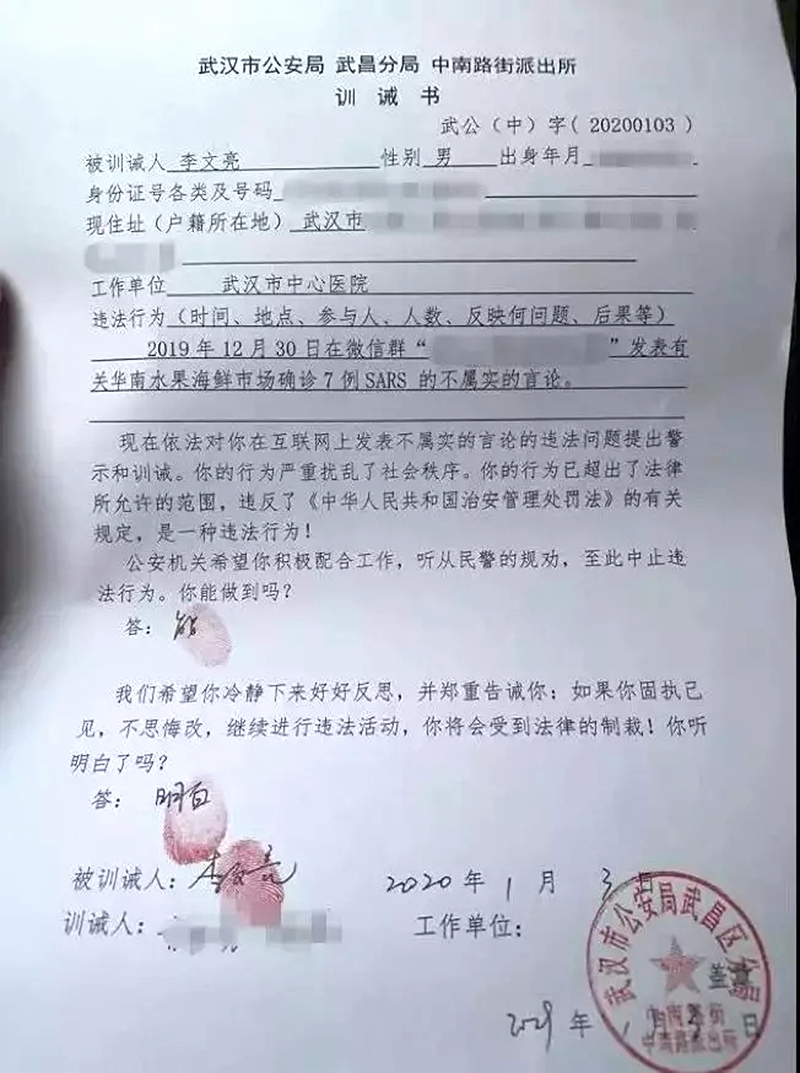 武汉市公安局 武昌分局 中南路街派出所
训 诫 书
武公（中）字( 20200103 )
被训诫人 李文亮 性别 男 出身年月
身份证号各类及号码
现住址（户籍所在地） 武汉市
工作单位 武汉市中心医院
违法行为（时间、地点、参与人、人数、反映何问题、后果等）
2019 年 12 月 30 日在微信群“ ”发表有
关华南水果海鲜市场确诊 7 例 SARS 的不属实的言论。
现在依法对你在互联网上发表不属实的言论的违法问题提出警
示和训诫。你的行为严重扰乱了社会秩序。你的行为已超出了法律
所允许的范围，违反了《中华人民共和国治安管理处罚法》的有关
规定，是一种违法行为！
公安机关希望你积极配合工作，听从民警的规劝，至此中止违
法行为。你能做到吗？
答： 能
我们希望你冷静下来好好反思，并郑重告诫你：如果你固执己
见，不思悔改，继续进行违法活动，你将会受到法律的制裁！你听
明白了吗？
答： 明白
被训诫人：李文亮 2020 年 1 月 3 日
训诫人： 工作单位：
年 月 日
武汉市公安局武昌区分局
中南路街派出所